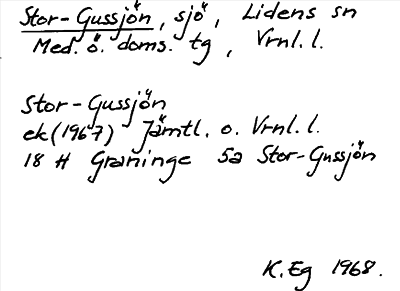 Stor-Gussjön, sjö, Lidens sn
Med. ö. doms. tg, Vrnl. l.
Stor-Gussjön
ek (1967) Jämtl. o. Vrnl. l.
18 H Graninge 5a Stor-Gussjön
K. Eg 1968.